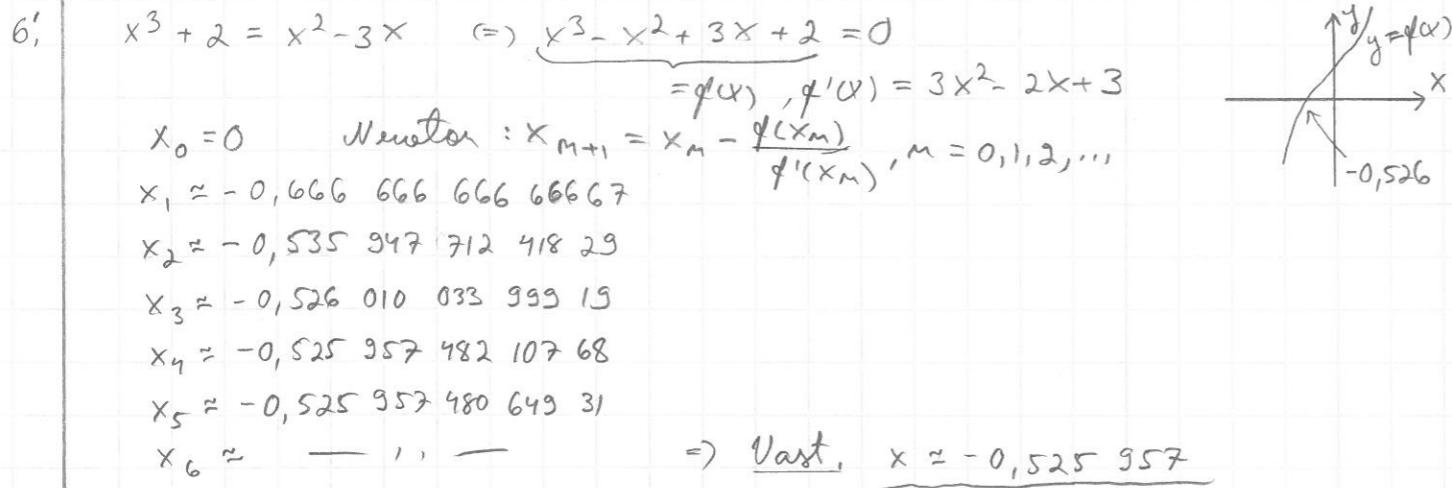 6', x³ + 2 = x² - 3x (=) x³ - x² + 3x + 2 = 0
= f(x), f'(x) = 3x² - 2x + 3
x₀ = 0 Newton : xₙ₊₁ = xₙ - f(xₙ)/f'(xₙ), n = 0,1,2,...
x₁ ≈ -0,666 666 666 66667
x₂ ≈ -0,535 947 712 418 29
x₃ ≈ -0,526 010 033 999 19
x₄ ≈ -0,525 957 482 107 68
x₅ ≈ -0,525 957 480 649 31
x₆ ≈ — ,, — => Vast. x ≈ -0,525 957
y
y = f(x)
x
-0,526